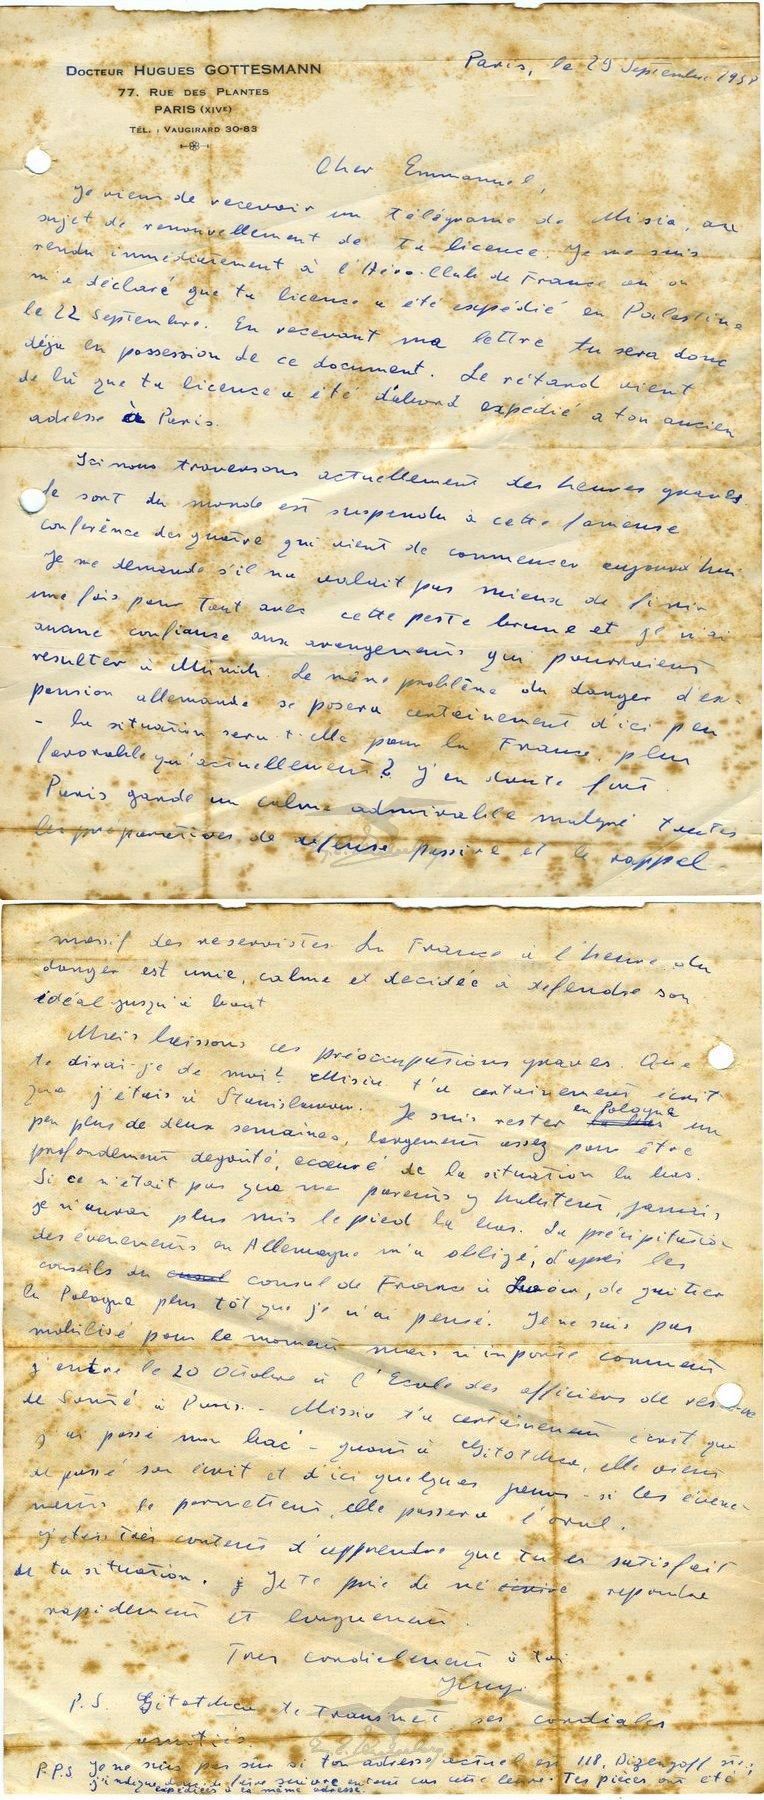 DOCTEUR HUGUES GOTTESMANN
77, RUE DES PLANTES
PARIS (XIVE)
TÉL. : VAUGIRARD 30-83
Paris, le 29 Septembre 1938
Cher Emmanuel,
Je viens de recevoir un télégrame de Misia, au
sujet de renouvellement de ta licence. Je me suis
rendu immédiatement à l'Aéro-Club de France où on
m'a déclaré que ta licence a été expédié en Palestine
le 22 Septembre. En recevant ma lettre tu sera donc
déjà en possession de ce document. Le rétard vient
de là que ta licence a été d'abord expédié a ton ancien
adresse à Paris.
Ici nous traversons actuellement des heures graves.
Le sort du monde est suspendu à cette fameuse
conférence des quatre qui vient de commencer aujourd'hui
Je me demande s'il ne valait pas mieux de finir
une fois pour tout avec cette peste brune et je n'ai
aucune confiance aux arengements qui pourraient
résulter à Münich. Le même problème du danger d'ex-
pension allemande se posera certainement d'ici peu
- la situation sera-t-elle pour la France plus
favorable qu'actuellement? J'en doute fort.
Paris garde un calme admirable malgré toutes
les préparatives de défense passive et le rappel
massif des reservistes. La France à l'heure du
danger est unie, calme et décidée à defendre son
idéal jusqu'à bout
Mais laissons ces préoccupations graves. Que
te dirai-je de moi? Misia t'a certainement écrit
que j'étais à Stanislawow. Je suis rester en Pologne un
peu plus de deux semaines, largement assez pour être
profondement degouté, écœuré de la situation la bas.
Si ce n'était pas que mes parents y habitent, jamais
je n'aurai plus mis le pied la bas. La précipitation
des évenements en Allemagne m'a obligé, d'après les
conseils du consul de France à Lwow, de quitter
la Pologne plus tôt que je n'ai pensé. Je ne suis pas
mobilisé pour le moment mais n'importe comment
j'entre le 20 Octobre à l'Ecole des officiers de reserve
de Santé à Paris. - Missia t'a certainement ecrit que
j'ai passé mon bac - quant à Gitotchka, elle vient
de passé son écrit et d'ici quelques jours - si les évene-
ments le permettent, elle passera l'oral.
J'étais très content d'apprendre que tu es satisfait
de ta situation. Je te prie de me répondre
rapidement et longuement.
Tres cordialement à toi
P.S. Gitotchka te transmet ses cordiales
amitiés.
P.P.S Je ne suis pas sûr si ton adresse actuel est 118, Dizengoff str.;
j'indique donc de faire suivre en tout cas cette lettre. Tes pièces ont été
expédiées à la même adresse.